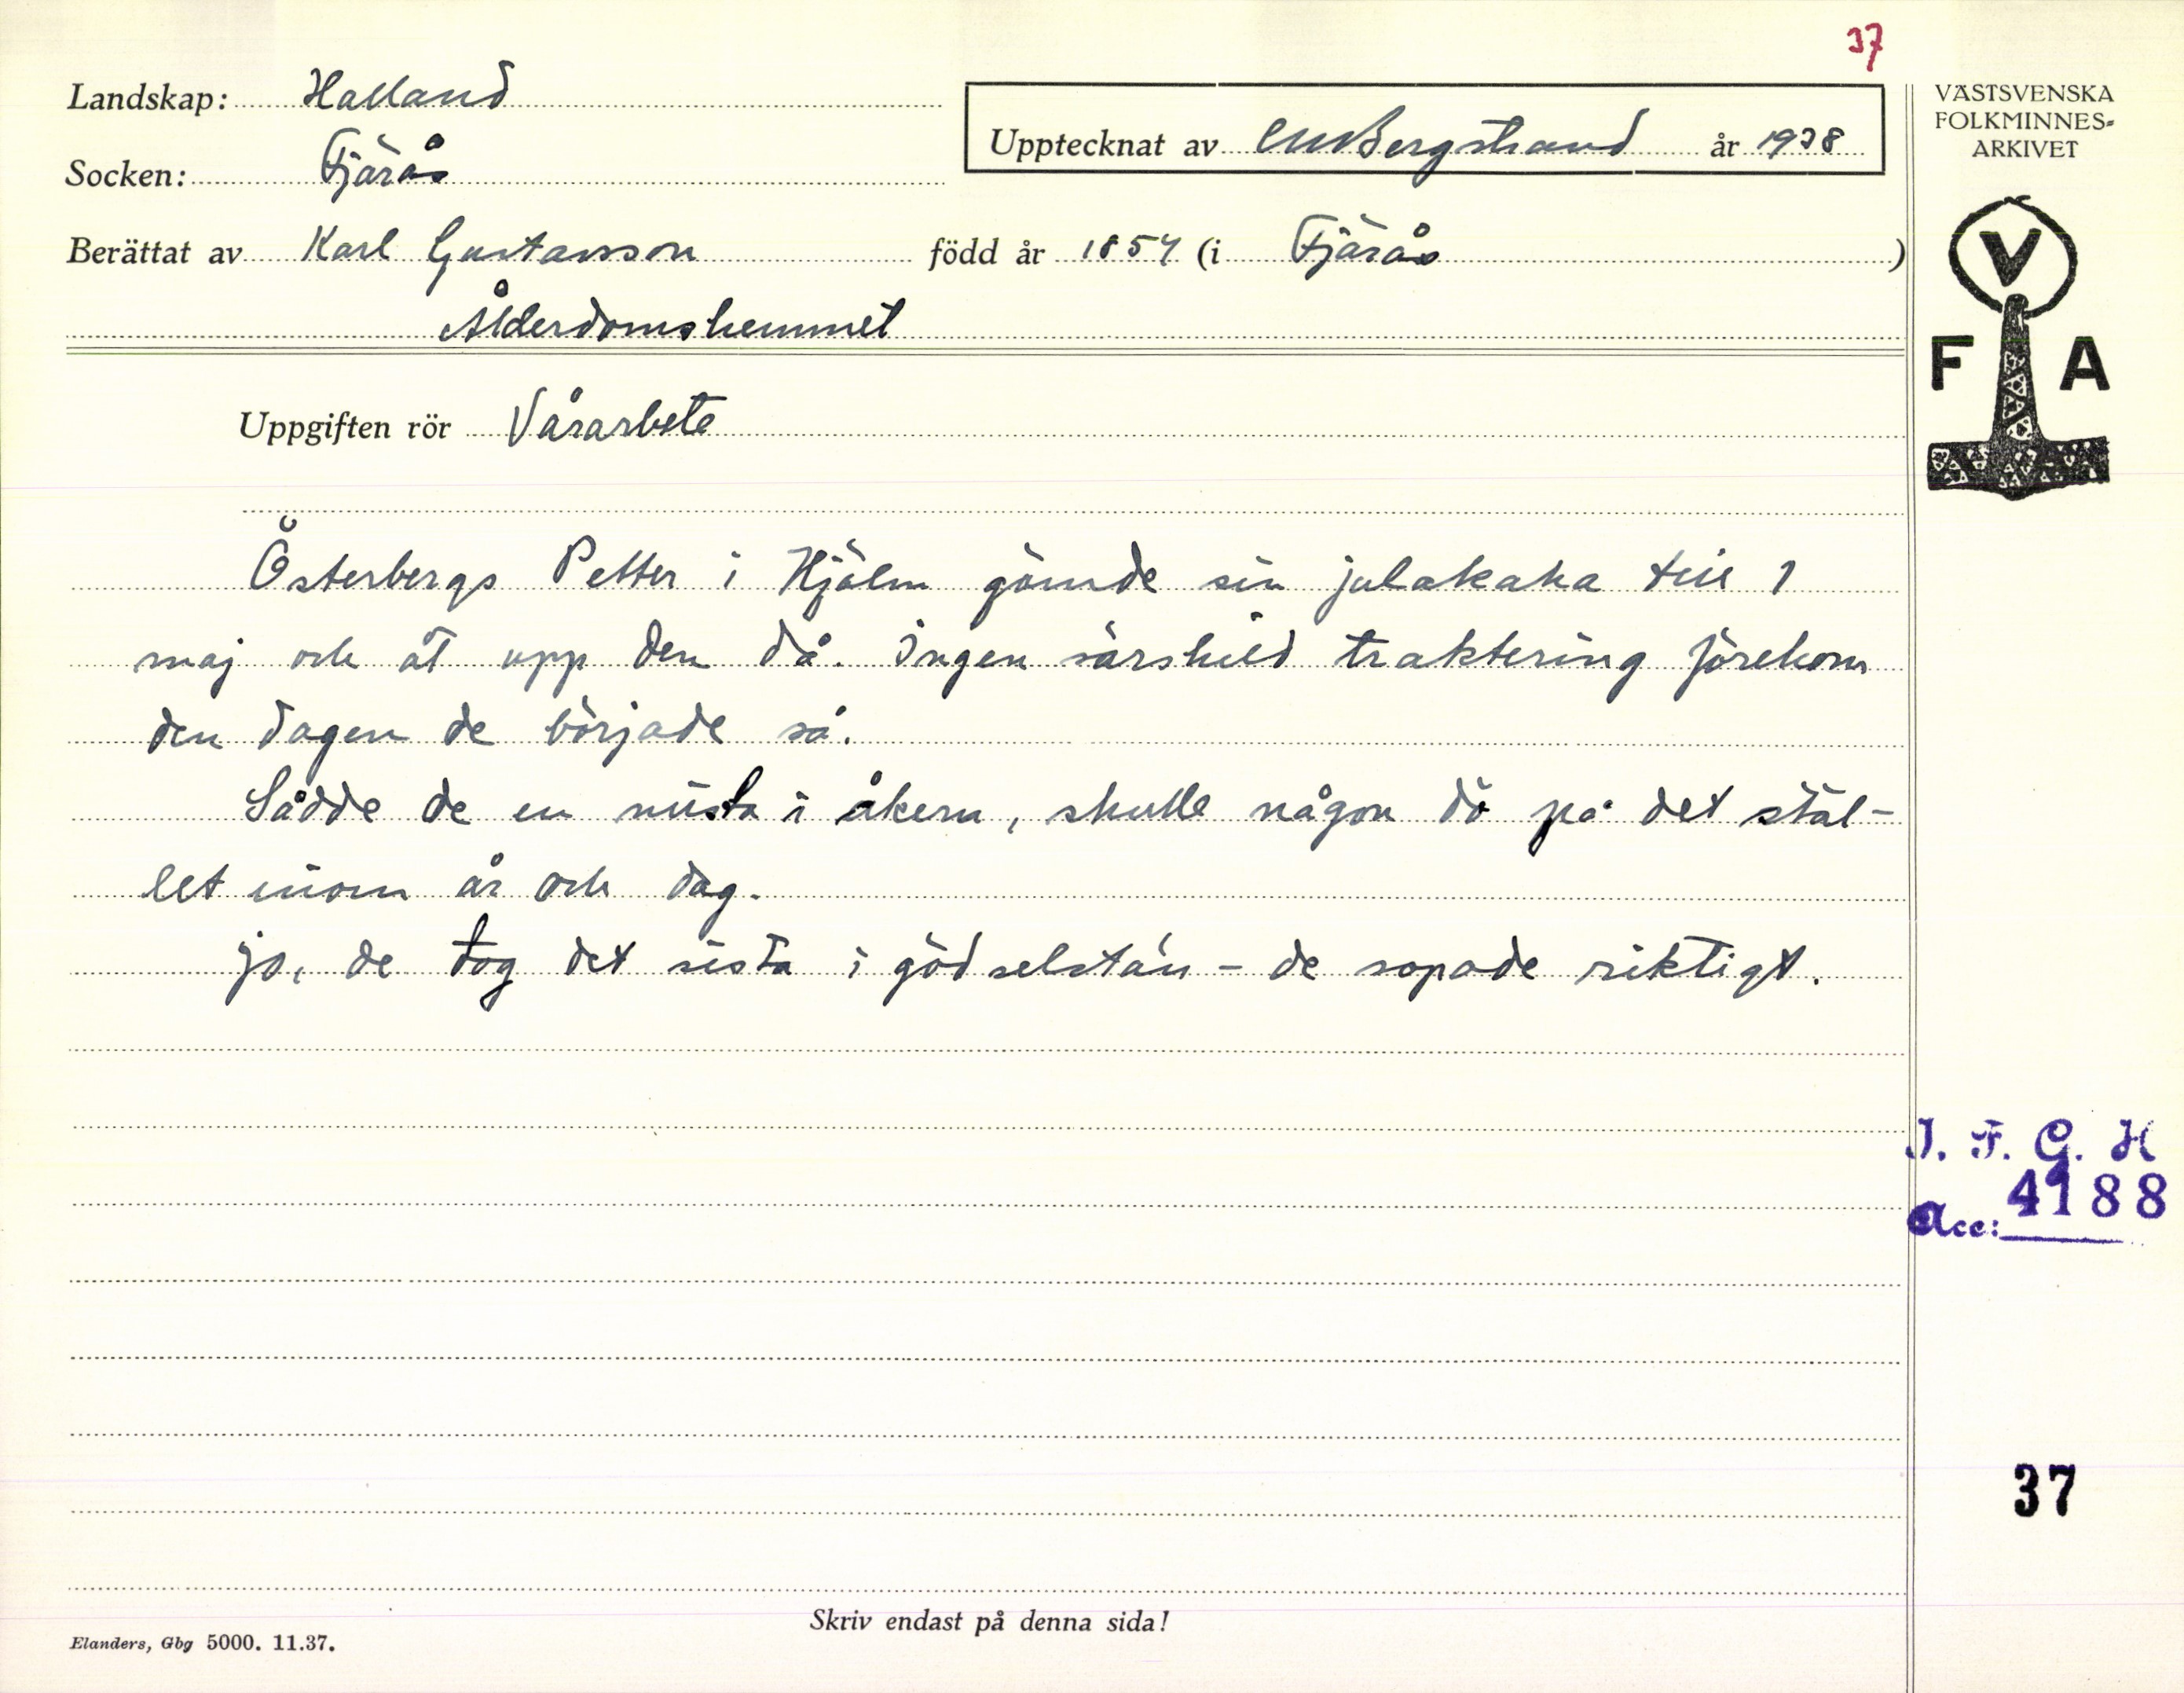 37
Landskap: Halland
Upptecknat av CMBergstrand år 1938
Socken: Fjärås
Berättat av Karl Gustavsson född år 1857 (i Fjärås)
Ålderdomshemmet
VÄSTSVENSKA
FOLKMINNES-
ARKIVET
V
F A
Uppgiften rör Vårarbete
Österbergs Petter i Hjälm gömde sin julakaka till 1
maj och åt upp den då. Ingen särskild traktering förekom
den dagen de började så.
Sådde de en mista i åkern, skulle någon dö på det stäl-
let inom år och dag.
Jo, de tog det sista i gödselstán – de sopade riktigt.
I. F. G. H
Acc: 4188
37
Skriv endast på denna sida!
Elanders, Gbg 5000. 11.37.